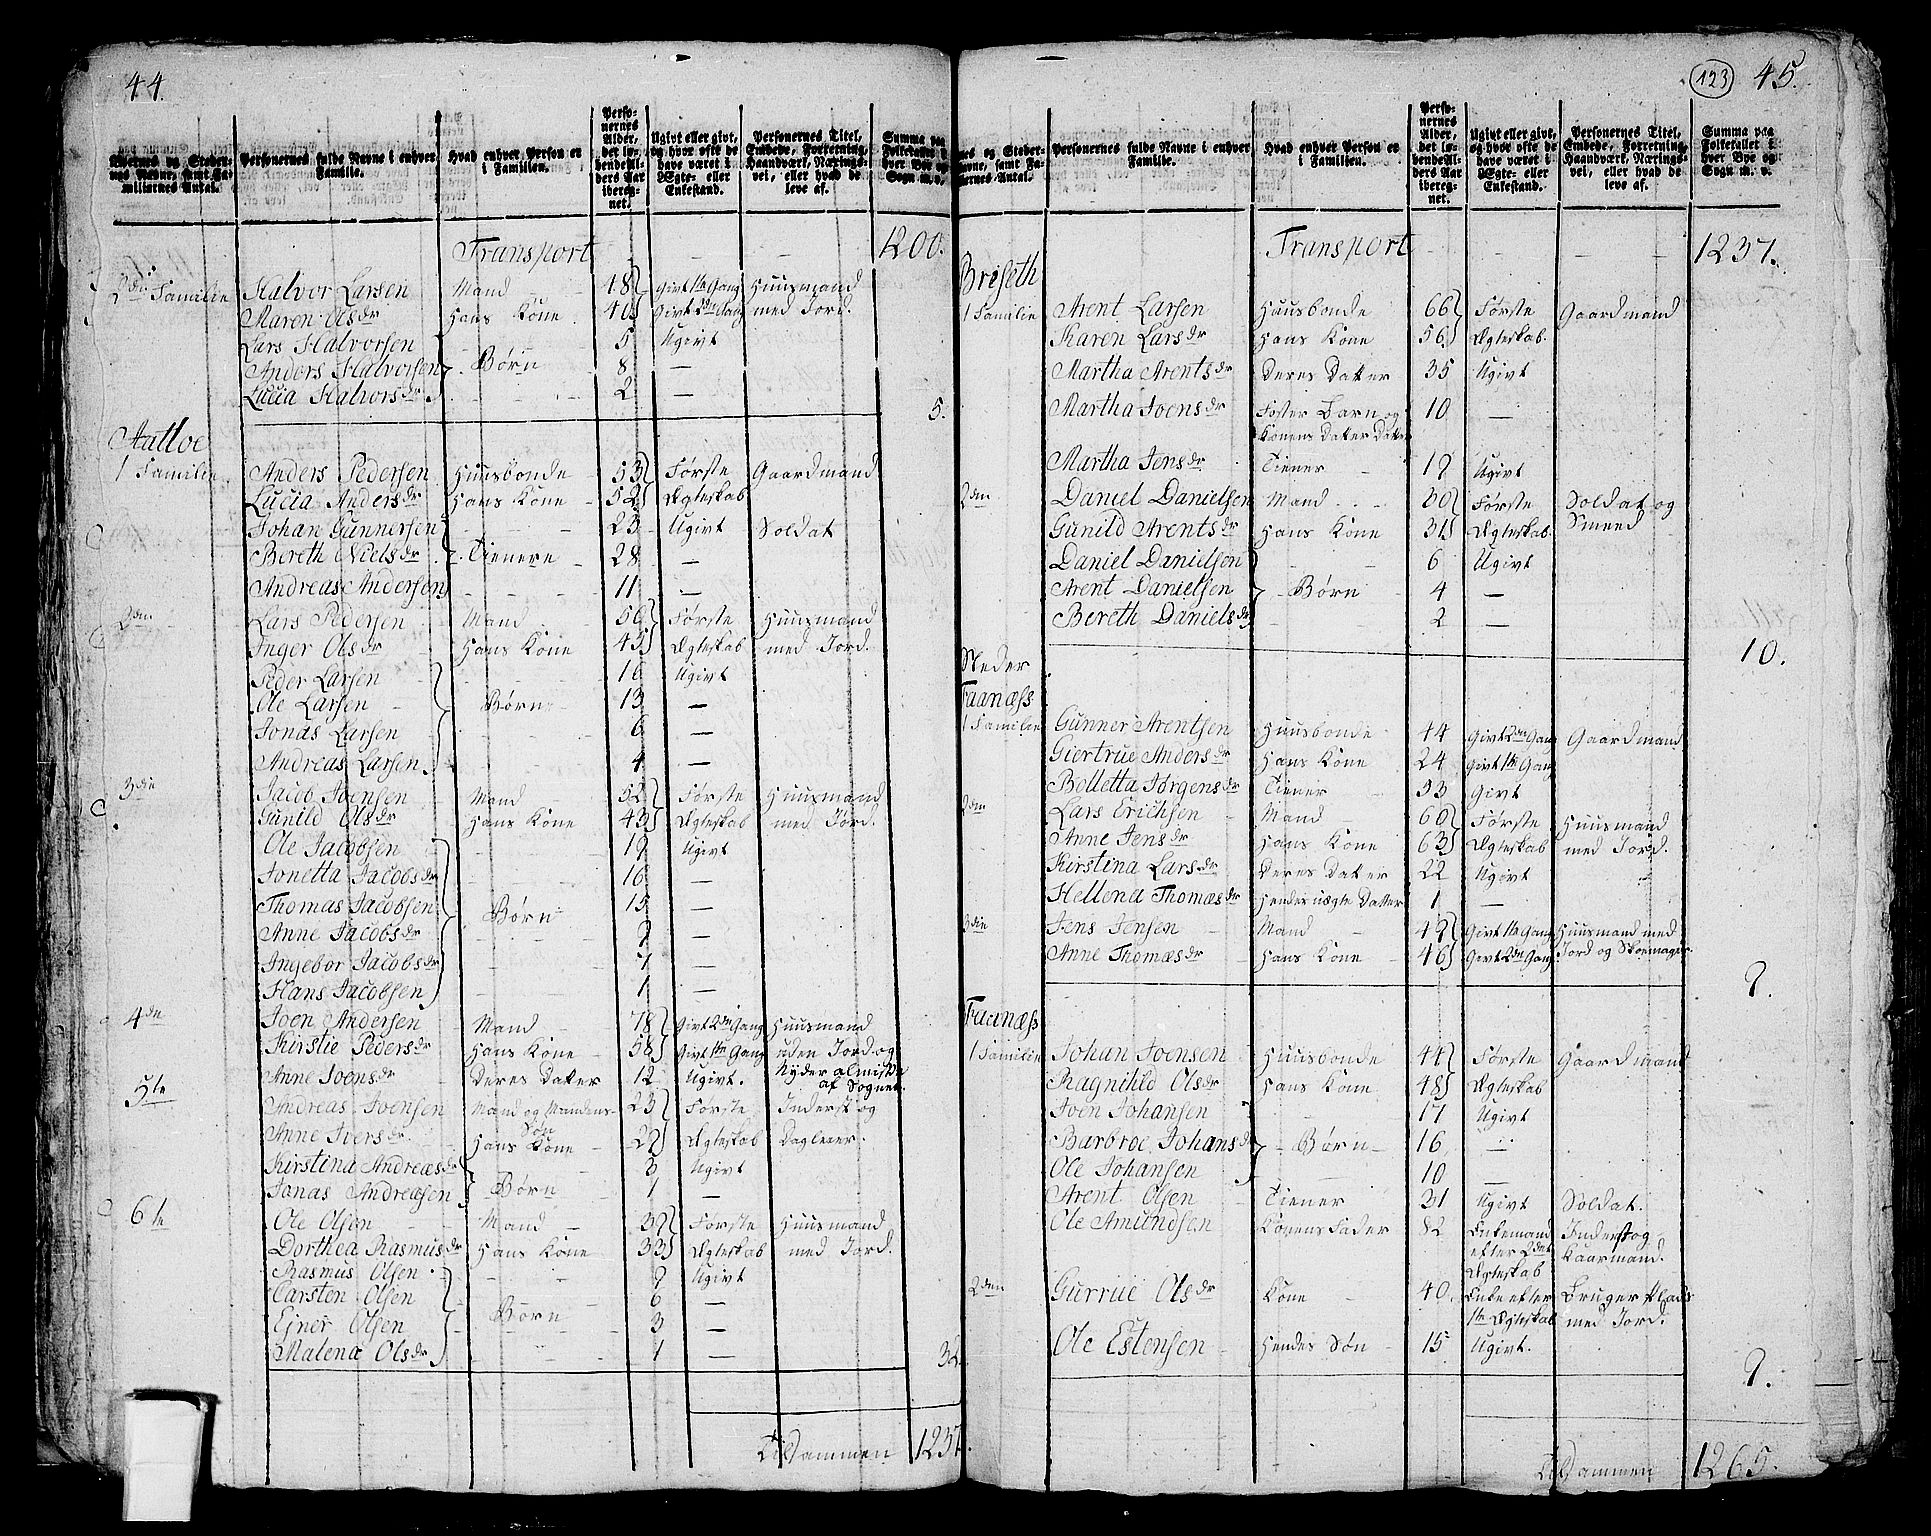 44.
Byernes og Stedernes Navne, samt Familiernes Antal. | Personernes fulde Navne i enhver Familie. | Hvad enhver Person er i Familien. | Personernes Alder, det løbende Alders Aar iberegnet. | Ugivt eller givt, og hvor ofte de have været i Ægte- eller Enkestand. | Personernes Titel, Embede, Forretning, Haandværk, Næringsvei, eller hvad de leve af. | Summa paa Folketallet i hver Bye og Sogn m. v.
Transport 1200.
2die Familie Halvor Larsen Mand 48 Givt 1te Gang Huusmand
Maren Olsdr Hans Kone 40 Givt 2den Gang med Jord.
Lars Halvorsen 5 Ugivt
Anders Halvorsen Børn 8 —
Lucia Halvorsdr 2 —
5.
1 Familie Anders Pedersen Huusbonde 53 Første Gaardmand
Lucia Andersdr Hans Kone 52 Ægteskab
Johan Gunnersen 23 Ugivt Soldat
Bereth Nielsdr Tienere 28 —
Andreas Andersen 11 —
2den Lars Pedersen Mand 56 Første Huusmand
Inger Olsdr Hans Kone 45 Ægteskab med Jord.
Peder Larsen 16 Ugivt
Ole Larsen Børn 13 —
Jonas Larsen 6 —
Andreas Larsen 4 —
3die Jacob Joensen Mand 52 Første Huusmand
Gunild Olsdr Hans Kone 43 Ægteskab med Jord.
Ole Jacobsen 19 Ugivt
Jonetta Jacobsdr 16 —
Thomas Jacobsen 15 —
Anne Jacobsdr Børn 9 —
Ingebor Jacobsdr 7 —
Hans Jacobsen 1 —
4de Joen Andersen Mand 78 Givt 2den Gang Huusmand
Kirstie Pedersdr Hans Kone 58 Givt 1te Gang uden Jord og
Anne Joensdr Deres Datter 12 Ugivt. Nyder almisse af Sognet.
5te Andreas Joensen Mand og Mandens Søn 23 Første Inderst og
Anne Iversdr Hans Kone 29 Ægteskab Dagleier.
Kirstina Andreæsdr 3 Ugivt
Jonas Andreæsen Børn 1 —
6te Ole Olsen Mand 39 Første Huusmand
Dorthea Rasmusdr Hans Kone 33 Ægteskab med Jord.
Rasmus Olsen 9 Ugivt
Carsten Olsen 6 —
Ejner Olsen Børn 3 —
Malena Olsdr 1 —
32.
Tilsammen 1237.
123 45.
Personernes fulde Navne i enhver Familie. | Hvad enhver Person er i Familien. | Personernes Alder, det løbende Alders Aar iberegnet. | Ugivt eller givt, og hvor ofte de have været i Ægte- eller Enkestand. | Personernes Titel, Embede, Forretning, Haandværk, Næringsvei, eller hvad de leve af. | Summa paa Folketallet i hver Bye og Sogn m. v.
Transport 1237.
Breseth
1 Familie Arent Larsen Huusbonde 66 Første Gaardmand
Karen Larsdr Hans Kone 56 Ægteskab.
Martha Arentsdr Deres Datter 35 Ugivt
Martha Joensdr Foster Barn og 10 —
Konens Datter Datter
Martha Jensdr Tiener 19 Ugivt
2den Daniel Danielsen Mand 30 Første Soldat og
Gunild Arentsdr Hans Kone 31 Ægteskab. Smeed
Daniel Danielsen 6 Ugivt
Arent Danielsen Børn 4 —
Bereth Danielsdr 2 —
10.
Neder
Faanæss
1 Familie Gunner Arentsen Huusbonde 44 Givt 2den Gang Gaardmand
Giertrue Andersdr Hans Kone 24 Givt 1te Gang
Bolletta Jørgensdr Tiener 33 Givt
2den Lars Erichsen Mand 60 Første Huusmand
Anne Jensdr Hans Kone 63 Ægteskab med Jord.
Kirstina Larsdr Deres Datter 22 Ugivt
Hellena Thomæsdr Hendes uægte Datter 1 —
3die Jens Jensen Mand 49 Givt 1te Gang Huusmand med
Anne Thomæsdr Hans Kone 46 Givt 2den Gang Jord og Skoemager.
9.
Faanæss
1 Familie Johan Joensen Huusbonde 44 Første Gaardmand
Ragnihld Olsdr Hans Kone 48 Ægteskab
Joen Johansen 17 Ugivt
Barbroe Johansdr Børn 16 —
Ole Johansen 10 —
Arent Olsen Tiener 31 Ugivt Soldat.
Ole Amundsen Konens Fader 82 Enkemand Inderst og
efter 2det Kaarmand.
Ægteskab
2den Gurrue Olsdr Kone 40 Enke efter Bruger Plads
1te Ægteskab med Jord.
Ole Estensen Hendes Søn 15 Ugivt.
9.
Tilsammen 1265.